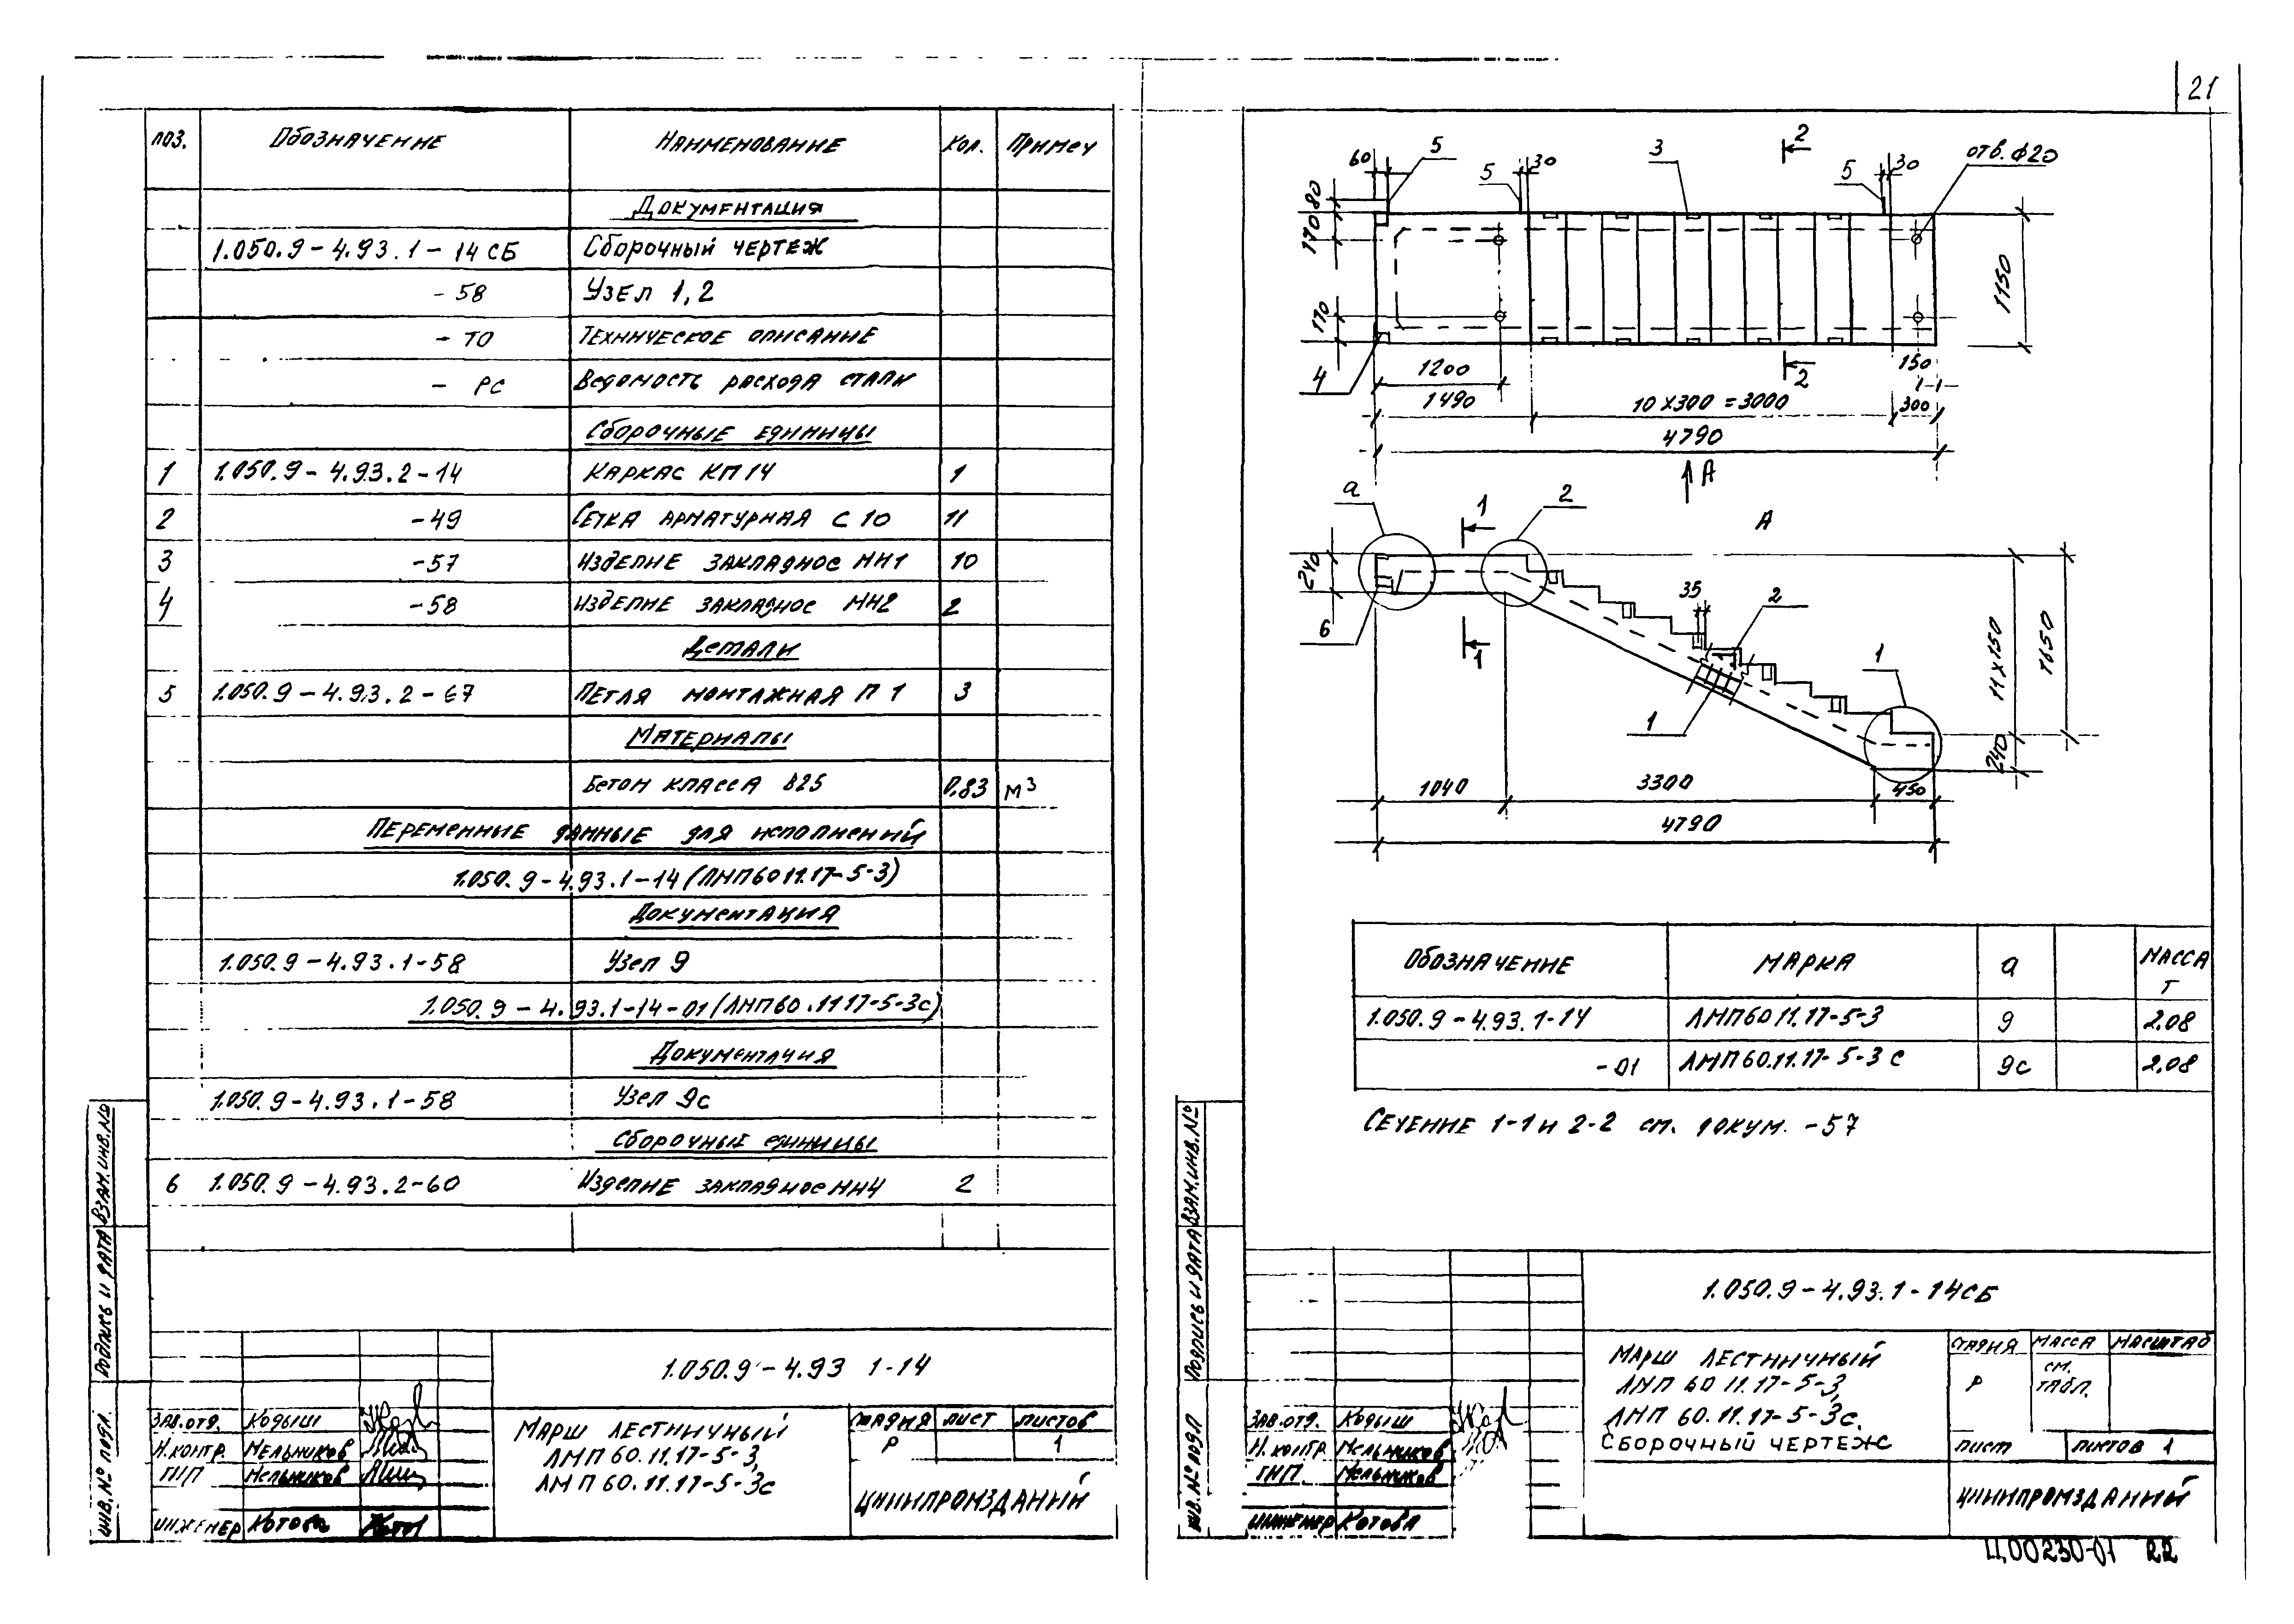 21
ПОЗ. Обозначение Наименование Кол. Примеч
Документация
1.050.9-4.93.1-14 СБ Сборочный чертеж
-58 Узел 1,2
- ТО Техническое описание
- РС Ведомость расхода стали
Сборочные единицы
1 1.050.9-4.93.2-14 Каркас КП14 1
2 -49 Сетка арматурная С10 11
3 -57 Изделие закладное МН1 10
4 -58 Изделие закладное МН2 2
Детали
5 1.050.9-4.93.2-67 Петля монтажная П1 3
Материалы
Бетон класса В25 0,83 м³
Переменные данные для исполнений
1.050.9-4.93.1-14 (ЛМП60 11.17-5-3)
Документация
1.050.9-4.93.1-58 Узел 9
1.050.9-4.93.1-14-01 (ЛМП60.11 17-5-3с)
Документация
1.050.9-4.93.1-58 Узел 9с
Сборочные единицы
6 1.050.9-4.93.2-60 Изделие закладное МН4 2
1.050.9-4.93 1-14
Зав.отд. Кодыш
Н.контр. Мельников
ГИП Мельников
Инженер Котова
Марш лестничный
ЛМП 60.11.17-5-3,
ЛМП 60.11.17-5-3с
Стадия Лист Листов
Р 1
ЦНИИПРОМЗДАНИЙ
Инв.№ подл. Подпись и дата Взам.инв.№
60 5 5 30 3 2 5 30 отв. ф20
80
170
170
1150
4
1200
2
150
1490
10×300=3000
300
4790
А
а 1 2 А
240
35 2
6
1
1
1
11×150
1650
240
1040 3300 450
4790
Обозначение Марка а Масса т
1.050.9-4.93.1-14 ЛМП60 11.17-5-3 9 2.08
-01 ЛМП60.11.17-5-3 с 9с 2,08
Сечение 1-1 и 2-2 см. докум. -57
1.050.9-4.93.1-14СБ
Зав.отд. Кодыш
Н.контр Мельников
ГИП. Мельников
Инженер Котова
Марш лестничный
ЛМП 60 11.17-5-3,
ЛМП 60.11.17-5-3с.
Сборочный чертеж
Стадия Масса Масштаб
Р см. табл.
Лист Листов 1
ЦНИИПРОМЗДАНИЙ
Инв.№ подл Подпись и дата Взам.инв.№
Ц00230-01 22